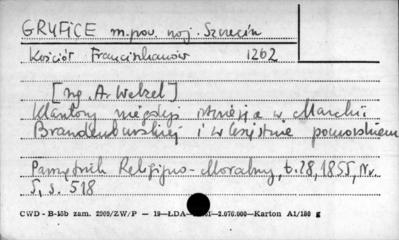 GRYFICE m.pow. woj. Szczecin
Kościół Franciszkanów 1262
[ng. A. Welzel]
Klasztory niegdyś istniejące w Marchii
Brandenburskiej i w księstwie pomorskiem
Pamiętnik Religijno-Moralny, t.28, 1855, Nr.
5, s. 518
CWD - B-15b zam. 2909/ZW/P — 19—ŁDA—2.076.000—Karton A1/180 g